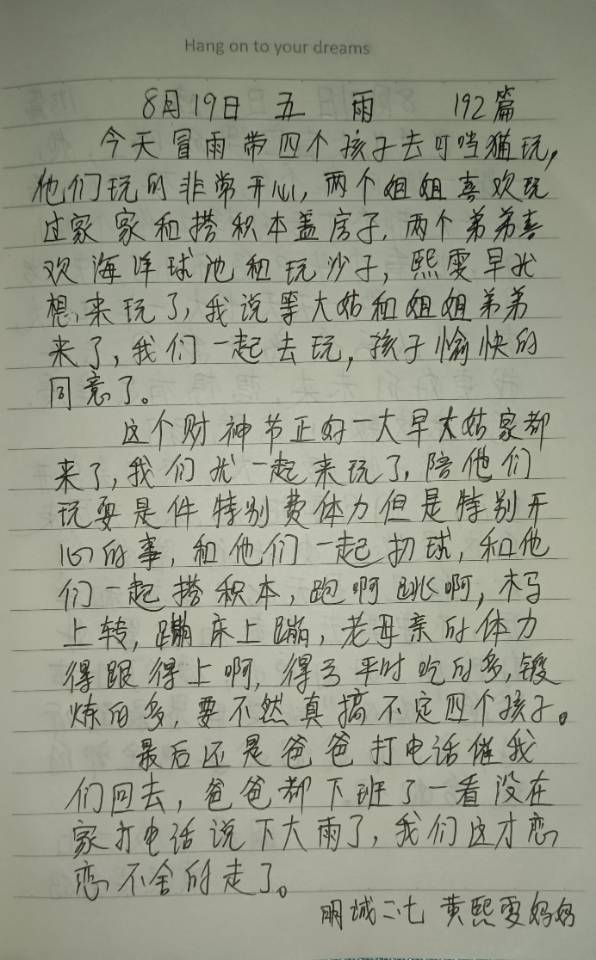 Hang on to your dreams
8月19日 五 雨 192篇
今天冒雨带四个孩子去叮当猫玩，
他们玩的非常开心，两个姐姐喜欢玩
过家家和搭积木盖房子，两个弟弟喜
欢海洋球池和玩沙子，熙雯早就
想来玩了，我说等大姑和姐姐弟弟
来了，我们一起去玩，孩子愉快的
同意了。
这个财神节正好一大早大姑家都
来了，我们就一起来玩了，陪他们
玩耍是件特别费体力但是特别开
心的事，和他们一起扔球，和他
们一起搭积木，跑啊跳啊，木马
上转，蹦床上蹦，老母亲的体力
得跟得上啊，得亏平时吃的多，锻
炼的多，要不然真搞不定四个孩子。
最后还是爸爸打电话催我
们回去，爸爸都下班了一看没在
家打电话说下大雨了，我们这才恋
恋不舍的走了。
明城二七 黄熙雯妈妈